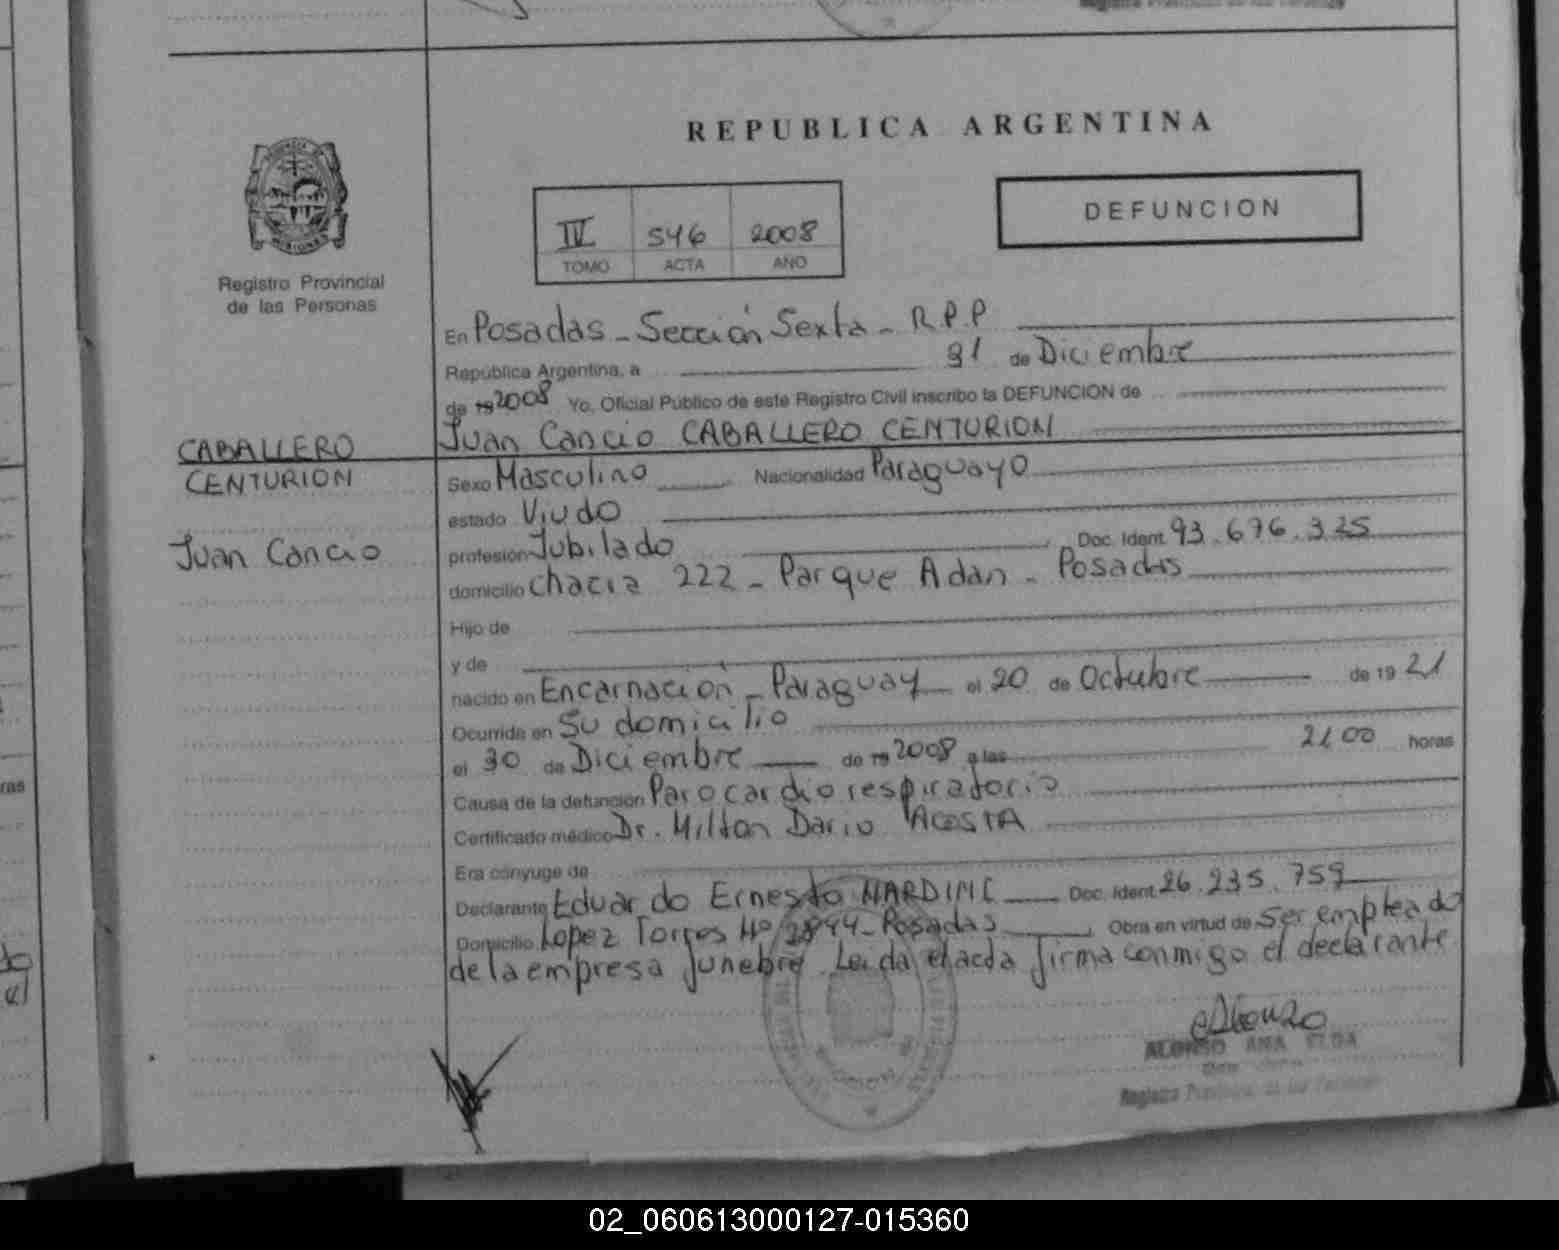 REPUBLICA ARGENTINA
DEFUNCION
IV 546 2008
TOMO ACTA AÑO
Registro Provincial
de las Personas
En Posadas - Sección Sexta - R.P.P
República Argentina, a 31 de Diciembre
de 19 2008 Yo, Oficial Público de este Registro Civil inscribo la DEFUNCION de
Juan Cancio CABALLERO CENTURION
CABALLERO
CENTURION
Juan Cancio
Sexo Masculino Nacionalidad Paraguayo
estado Viudo
profesión Jubilado Doc. Ident. 93.676.325
domicilio Chacra 222 - Parque Adan - Posadas
Hijo de
y de
nacido en Encarnación - Paraguay el 20 de Octubre de 19 21
Ocurrida en Su domicilio
el 30 de Diciembre de 19 2008 a las 21.00 horas
Causa de la defunción Parocardiorespiratorio
Certificado médico Dr. Milton Dario ACOSTA
Era cónyuge de
Declarante Eduardo Ernesto NARDINI Doc. Ident. 26.235.759
Domicilio Lopez Torres Nº 2844 - Posadas Obra en virtud de ser empleado
de la empresa funebre. Leida el acta firma conmigo el declarante
ALONSO ANA ELDA
Registro Provincial de las Personas
02_060613000127-015360